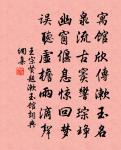 寓館欣傳漱玉名
泉流古竇響琮琤
幽窗偃息驚回夢
誤聽虛檐雨滴聲
王宗賢題漱玉館詞典
網集